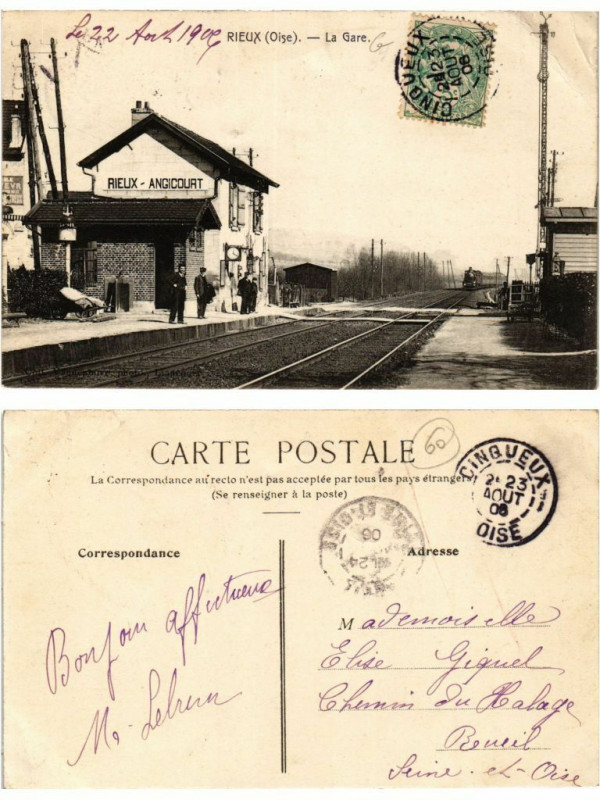 Le 22 Août 1906 RIEUX (Oise). — La Gare.
CINQUEUX
2E 23
AOUT
06
OISE
RIEUX - ANGICOURT
CARTE POSTALE
60
La Correspondance au recto n'est pas acceptée par tous les pays étrangers
(Se renseigner à la poste)
CINQUEUX
2E 23
AOUT
06
OISE
24
06
Correspondance
Adresse
Bonjour affectueux
M. Lebrun
Mademoiselle
Elise Giquel
Chemin du Halage
Rueil
Seine-et-Oise